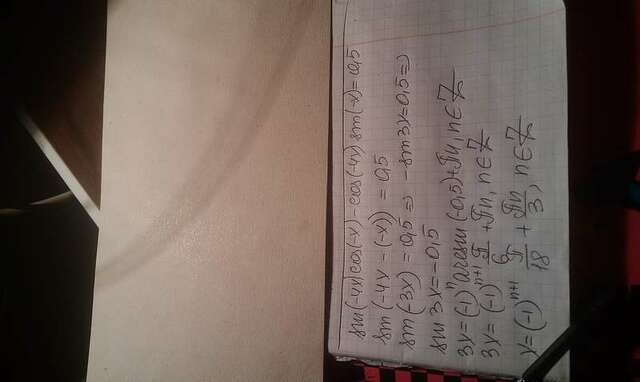 sin(-4x)cos(-x)-cos(-4x)sin(-x)=0,5
sin(-4x-(-x))=0,5
sin(-3x)=0,5=> -sin3x=0,5=>
sin 3x=-0,5
3x=(-1)ⁿarcsin(-0,5)+πn, n∈Z
3x=(-1)ⁿ⁺¹ π/6 +πn, n∈Z
x=(-1)ⁿ⁺¹ π/18 + πn/3, n∈Z